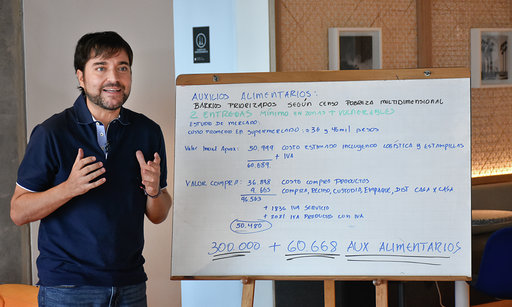 AUXILIOS ALIMENTARIOS:
BARRIOS PRIORIZADOS SEGÚN CENSO POBREZA MULTIDIMENSIONAL
2 ENTREGAS MÍNIMO EN ZONAS + VULNERABLES
ESTUDIO DE MERCADO:
COSTO PROMEDIO EN SUPERMERCADO: $36 y 45 mil PESOS
Valor Inicial Aprox: 50.999 COSTO ESTIMADO INCLUYENDO LOGÍSTICA y ESTAMPILLAS
+ IVA
60.689.
VALOR COMPRA: 36.898 COSTO COMPRA PRODUCTOS
9.665 COMPRA, RECIBO, CUSTODIA, EMPAQUE, DIST CASA x CASA
46.563
+ 1836 IVA SERVICIO
+ 2081 IVA PRODUCTOS CON IVA
50.480
300.000 + 60.668 AUX ALIMENTARIOS